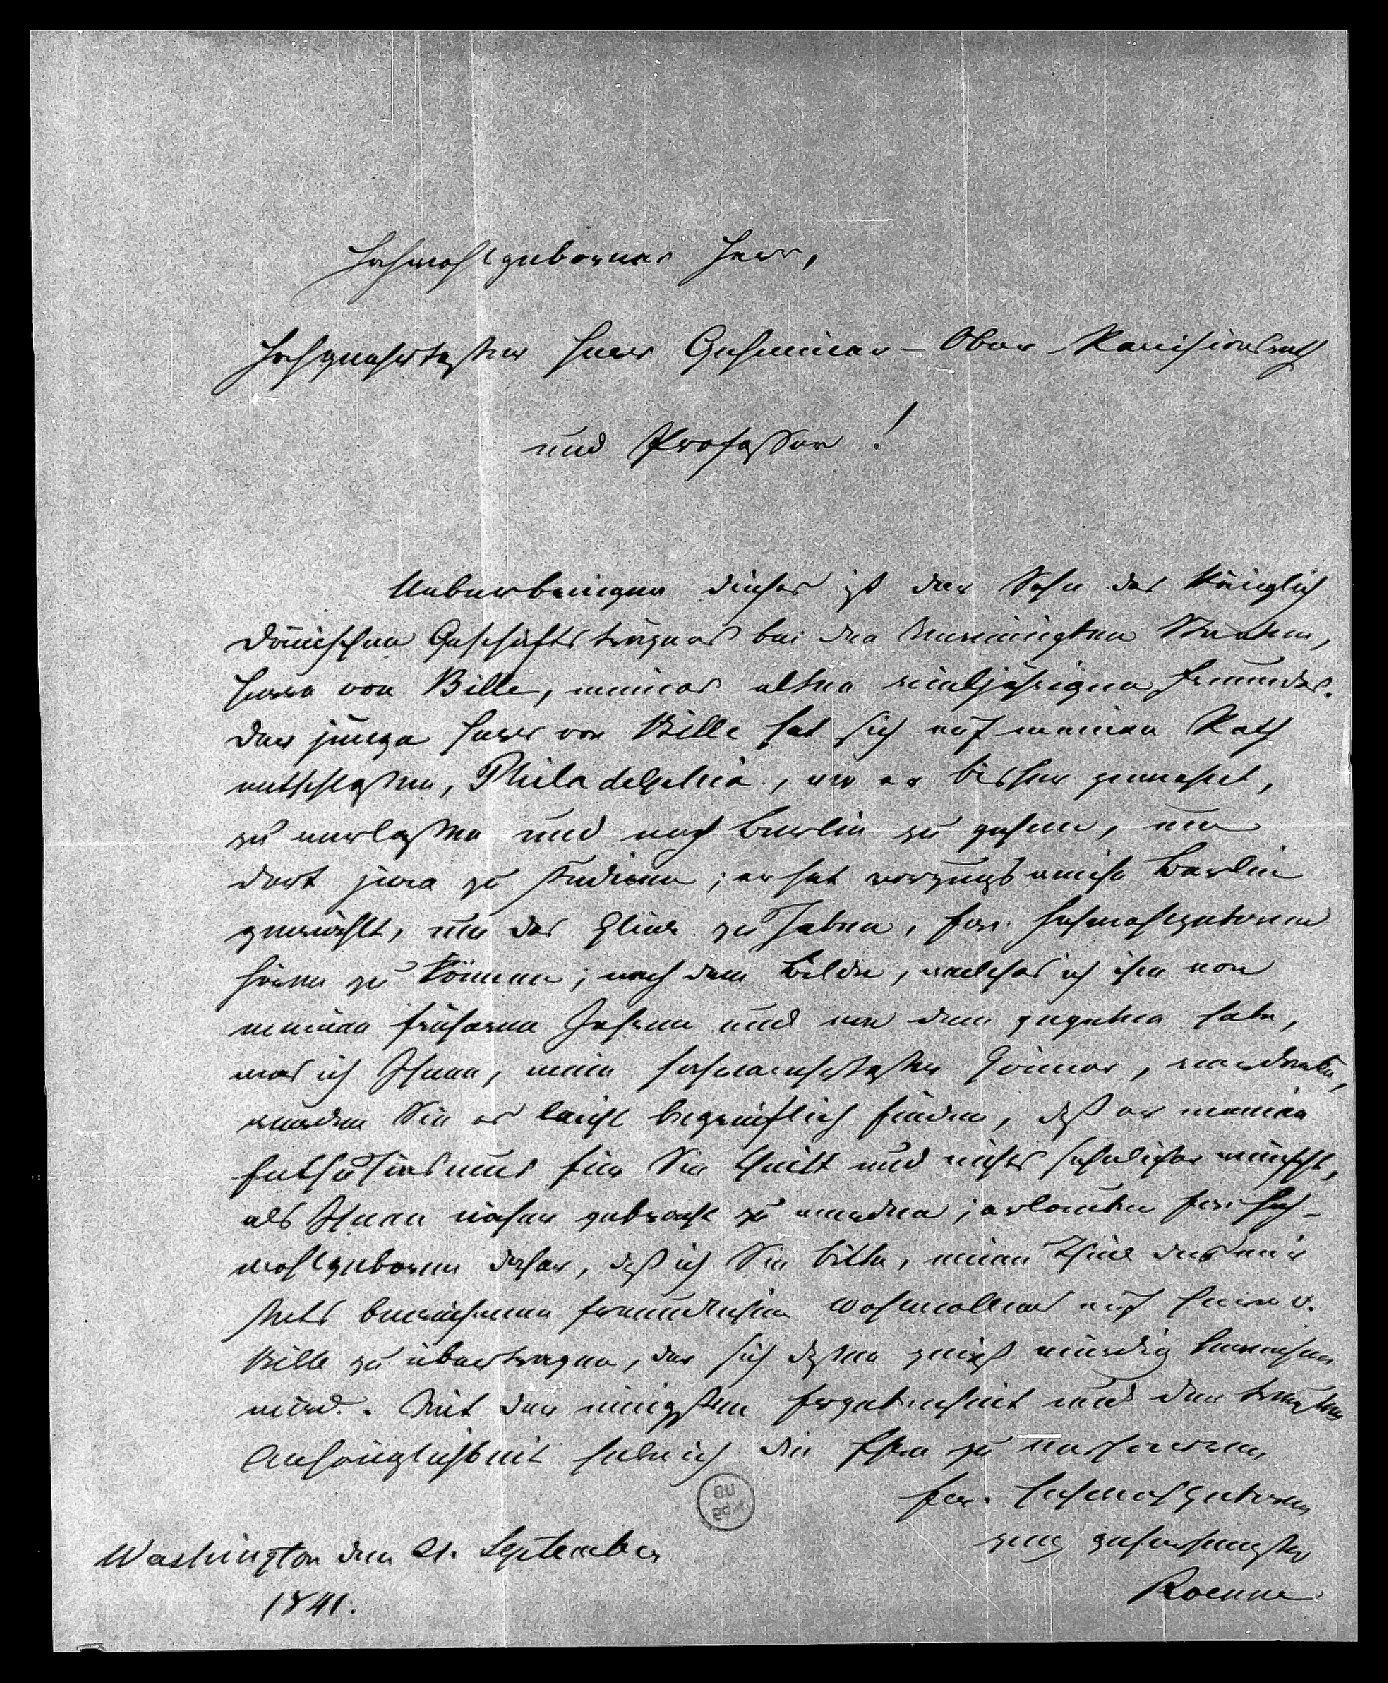 Hochwohlgeborner Herr,
Hochgeehrtester Herr Geheimer-Ober Revisionsrath
und Professor!
Ueberbringer dieses ist der Sohn des Königlich
Dänischen Geschäftsträgers bei den Vereinigten Staaten,
Herrn von Bille, meines alten vieljährigen Freundes.
Der junge Herr von Bille hat sich auf meinen Rath
entschlossen, Philadelphia, wo er bisher gewohnt,
zu verlassen und nach Berlin zu gehen, um
dort jura zu studiren; er hat vorzugsweise Berlin
gewählt, um das Glück zu haben, Ew. Hochwohlgeboren
hören zu können; nach dem Bilde, welches ich ihm von
meinen früheren Jahren und von dem gegeben habe,
was ich Ihnen, mein hochverehrtester Gönner, verdanke,
werden Sie es leicht begreiflich finden, daß er meinen
Enthusiasmus für Sie theilt und nichts sehnlicher wünscht,
als Ihnen näher gebracht zu werden; erlauben Ew. Hoch-
wohlgeboren daher, daß ich Sie bitte, einen Theil des mir
stets bewiesenen freundlichen Wohlwollens auf Herrn v.
Bille zu übertragen, der sich dessen gewiß würdig beweisen
wird. Mit der innigsten Ergebenheit und der treusten
Anhänglichkeit habe ich die Ehre zu verharren
Ew. Hochwohlgeboren
ganz gehorsamster
Roenne
Washington den 21. September
1841.